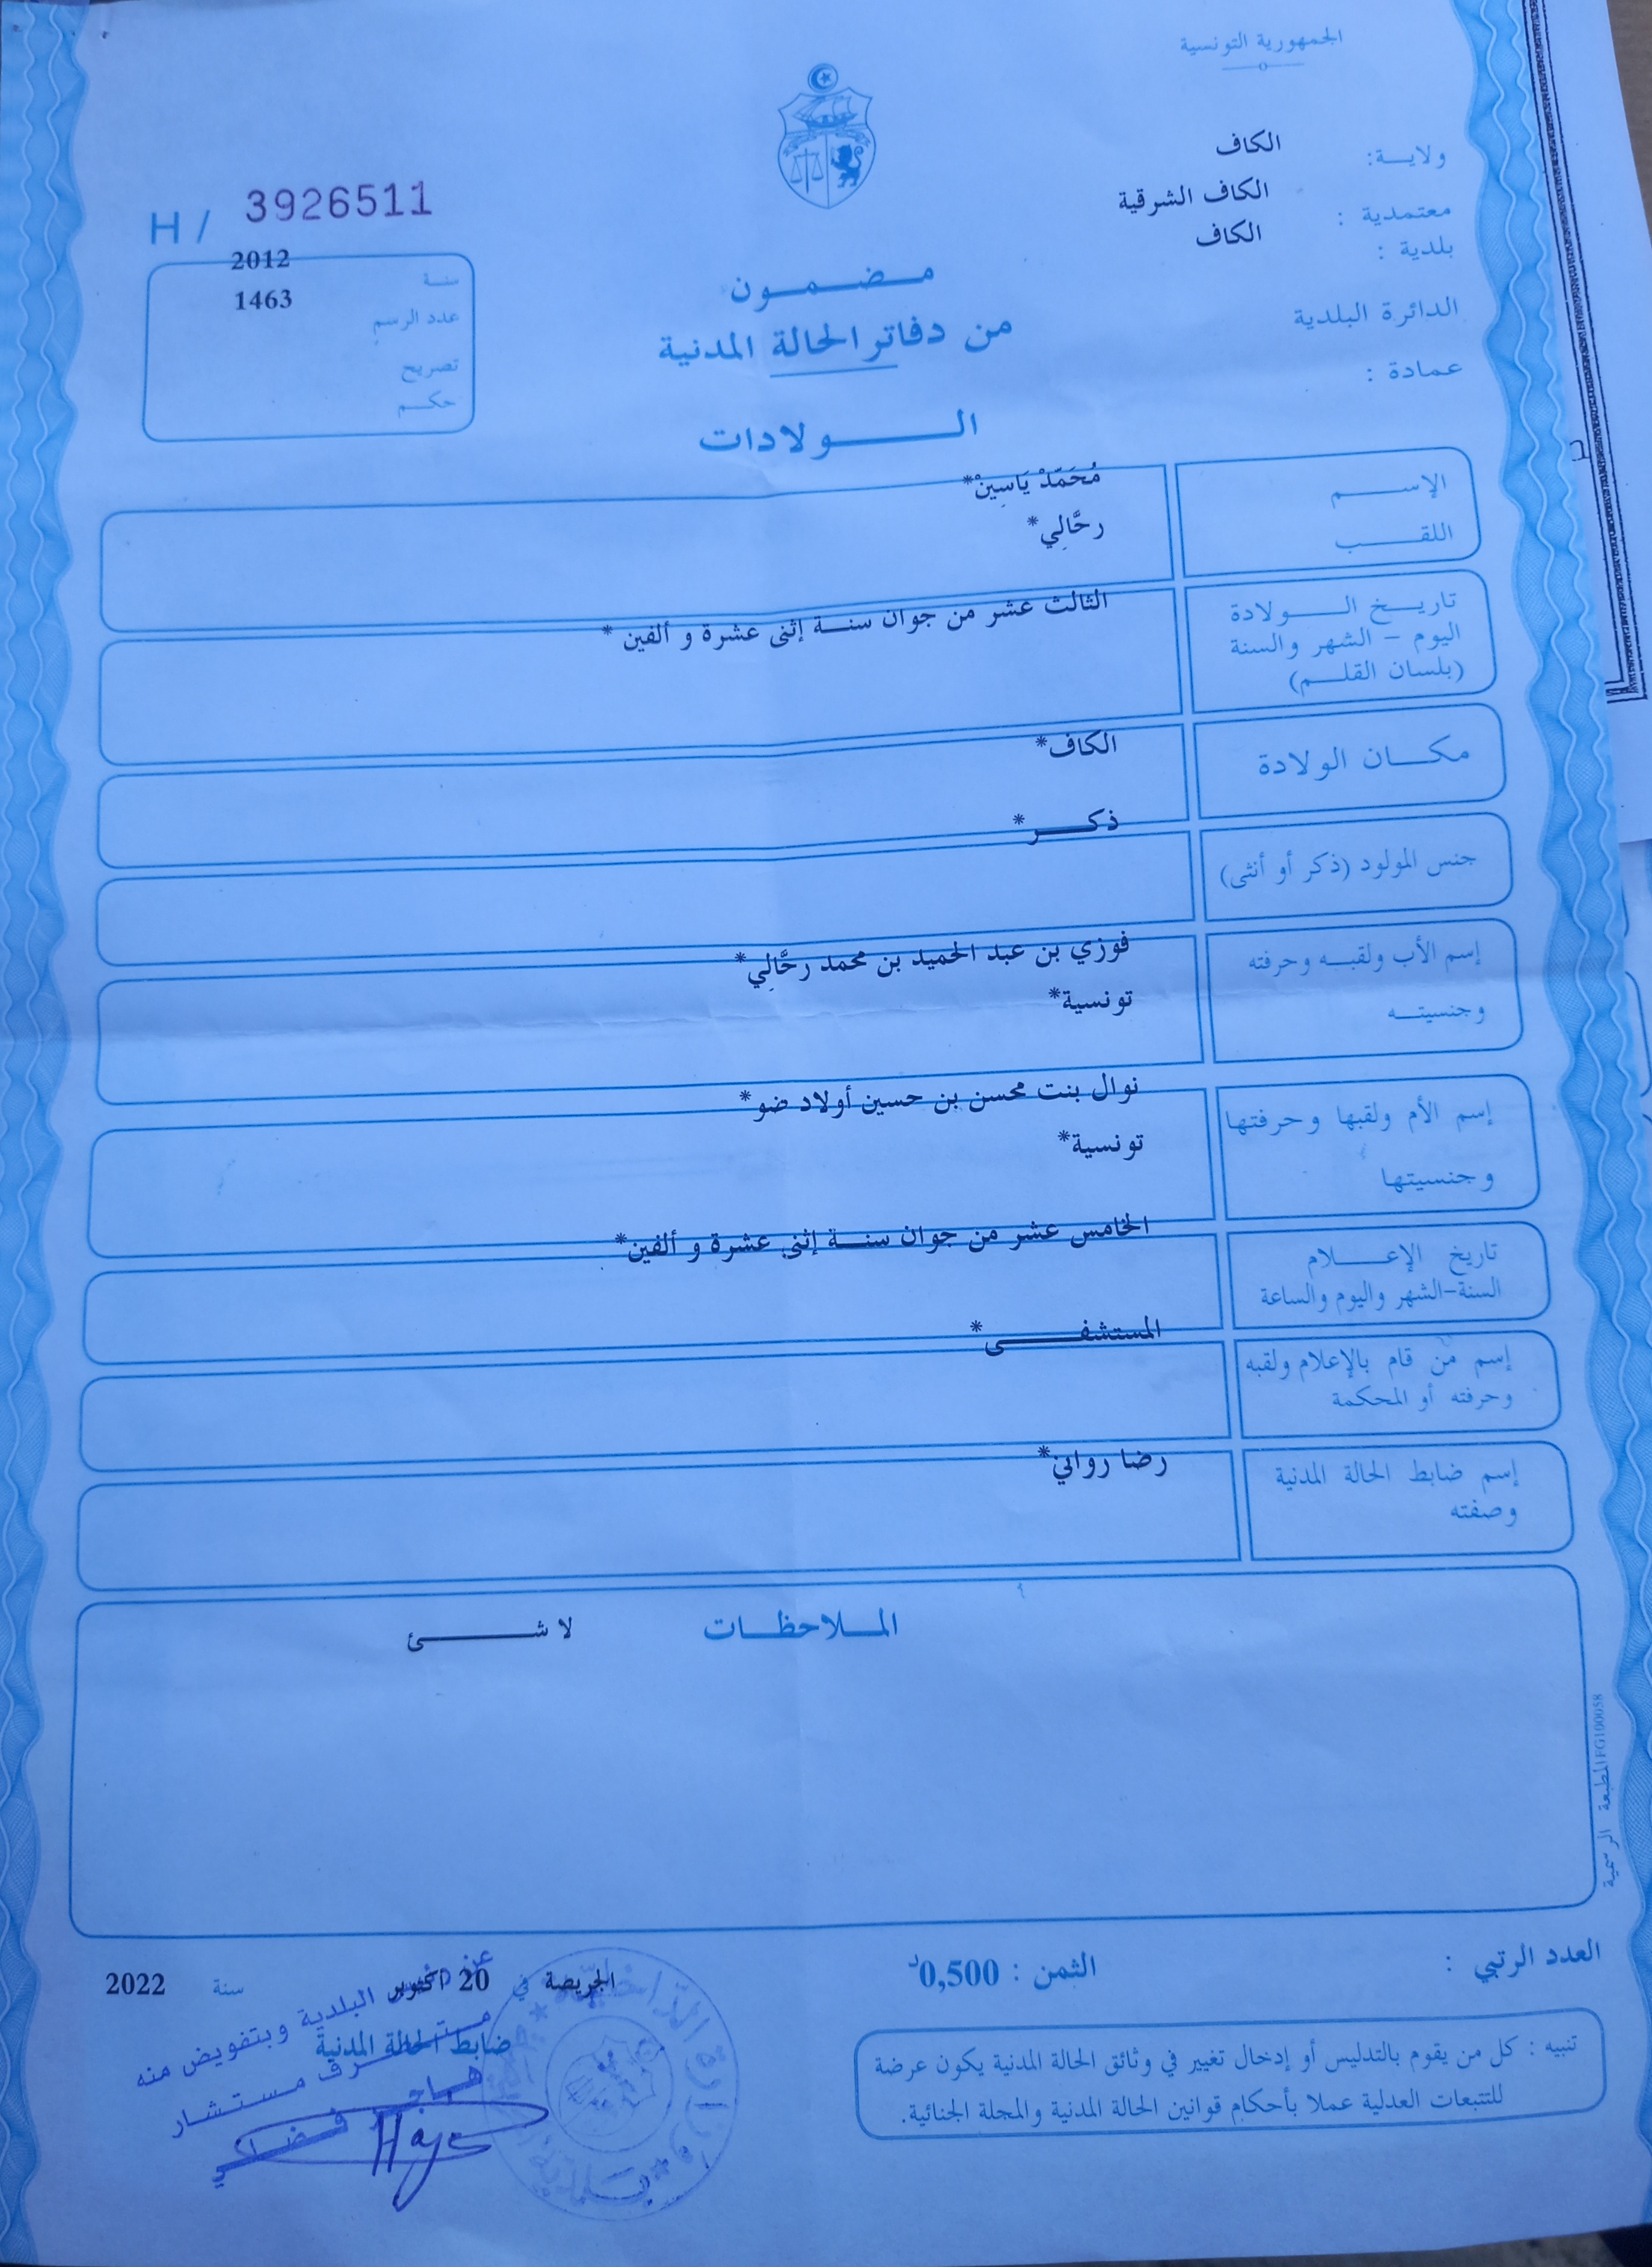 الجمهورية التونسية
ولاية: الكاف
معتمدية : الكاف الشرقية
بلدية : الكاف
الدائرة البلدية
عمادة :
H / 3926511
سنة 2012
عدد الرسم 1463
تصريح
حكم
مضمون
من دفاتر الحالة المدنية
الولادات
الإسم مُحَمَّدْ يَاسِينْ*
اللقب رحَّالِي*
تاريخ الولادة
اليوم - الشهر والسنة
(بلسان القلم)
الثالث عشر من جوان سنة إثنى عشرة و ألفين *
مكان الولادة الكاف*
جنس المولود (ذكر أو أنثى) ذكر*
إسم الأب ولقبه وحرفته فوزي بن عبد الحميد بن محمد رحَّالِي*
وجنسيته تونسية*
إسم الأم ولقبها وحرفتها نوال بنت محسن بن حسين أولاد ضو*
وجنسيتها تونسية*
تاريخ الإعلام
السنة-الشهر واليوم والساعة
الخامس عشر من جوان سنة إثنى عشرة و ألفين*
إسم من قام بالإعلام ولقبه
وحرفته أو المحكمة
المستشفى*
إسم ضابط الحالة المدنية رضا رواني*
وصفته
الملاحظات لا شئ
المطبعة الرسمية FG100058
العدد الرتبي :
الثمن : 0,500د
الجريصة في 20 اكتوبر سنة 2022
ضابط الحالة المدنية
البلدية وبتفويض منه
متصرف مستشار
هاجر
تنبيه : كل من يقوم بالتدليس أو إدخال تغيير في وثائق الحالة المدنية يكون عرضة
للتتبعات العدلية عملا بأحكام قوانين الحالة المدنية والمجلة الجنائية.